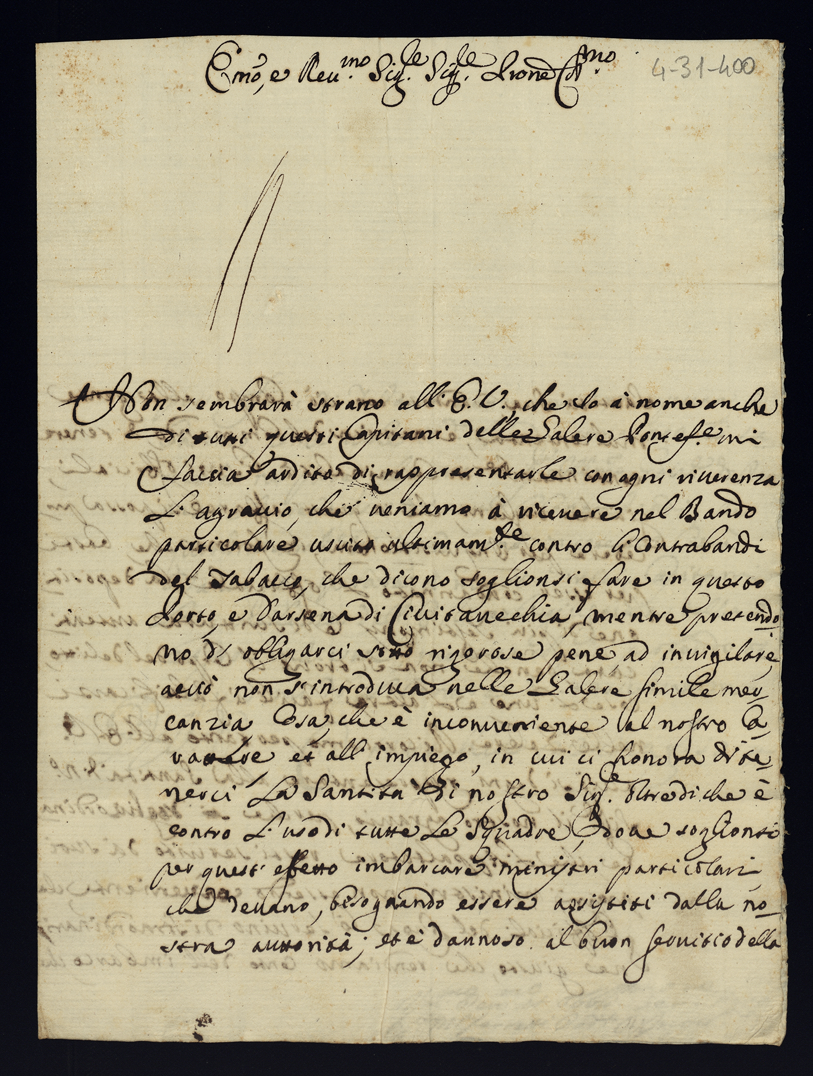 Emo, e Reu.mo Sig.re Sig.re Prone C.mo
4-31-400
Non sembrarà strano all' E. V., che Io à nome anche
di tutti questi Capitani delle Galere Pontef.e mi
faccia ardito di rappresentarle con ogni riuerenza
L'agrauio, che ueniamo à riceuere nel Bando
particolare uscito ultimam.te contro li Contrabandi
del Tabacco, che dicono soglionsi fare in questo
Porto, e Darsena di Ciuitauechia, mentre pretendo=
no di obligarci sotto rigorose pene ad inuigilare,
acciò non s'introduca nelle Galere simile mer=
canzia Cosa, che è inconueniente al nostro Ca=
rattere et all' impiego, in cui ci honora di te=
nerci La Santità di nostro Sig.re oltre di che è
contro L'uso di tutte Le Squadre, doue soglionsi
per questi effetto imbarcare ministri particolari
che deuano, bisognando essere assistiti dalla no=
stra auttorità; et è dannoso al buon seruitio della